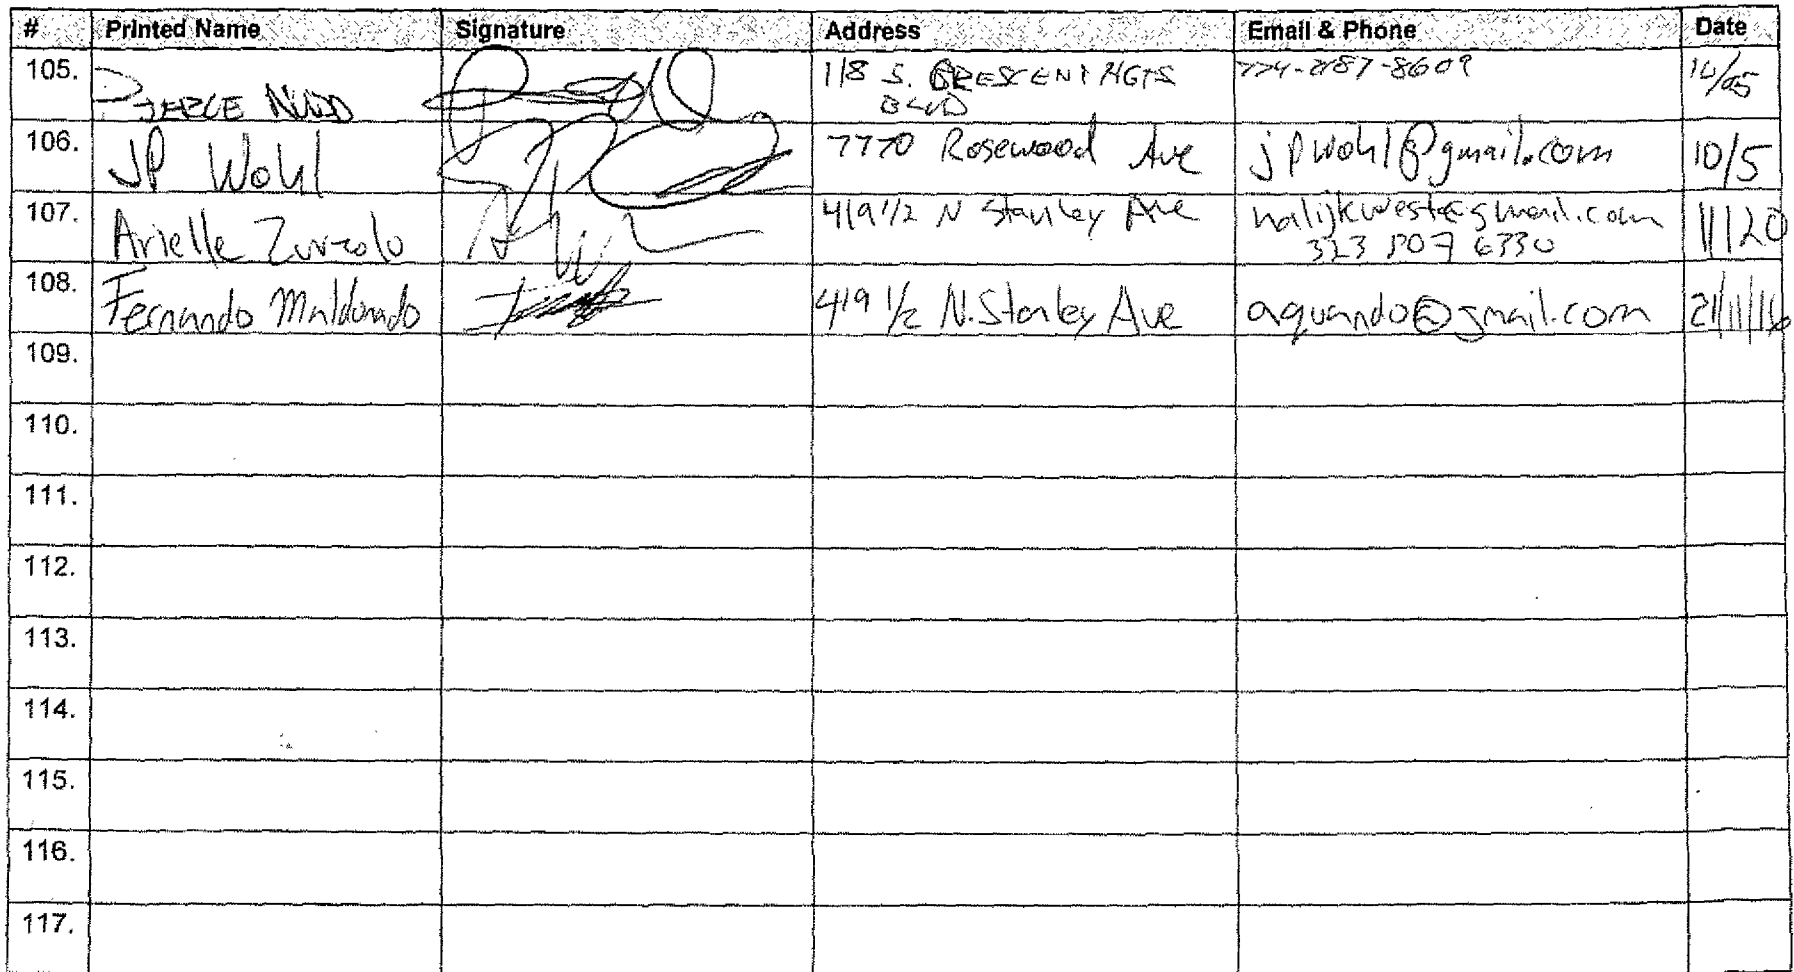 # Printed Name Signature Address Email & Phone Date
105. PIERCE NUDD 118 S. CRESCENT HGTS 10/05
BLVD
106. JP Wohl 7770 Rosewood Ave jpwohl@gmail.com 10/5
107. Arielle Zurzolo 419 1/2 N Stanley Ave 11/20
323 807 6330
108. Fernando Maldonado 419 1/2 N. Stanley Ave aquando@gmail.com 21/11/16
109.
110.
111.
112.
113.
114.
115.
116.
117.